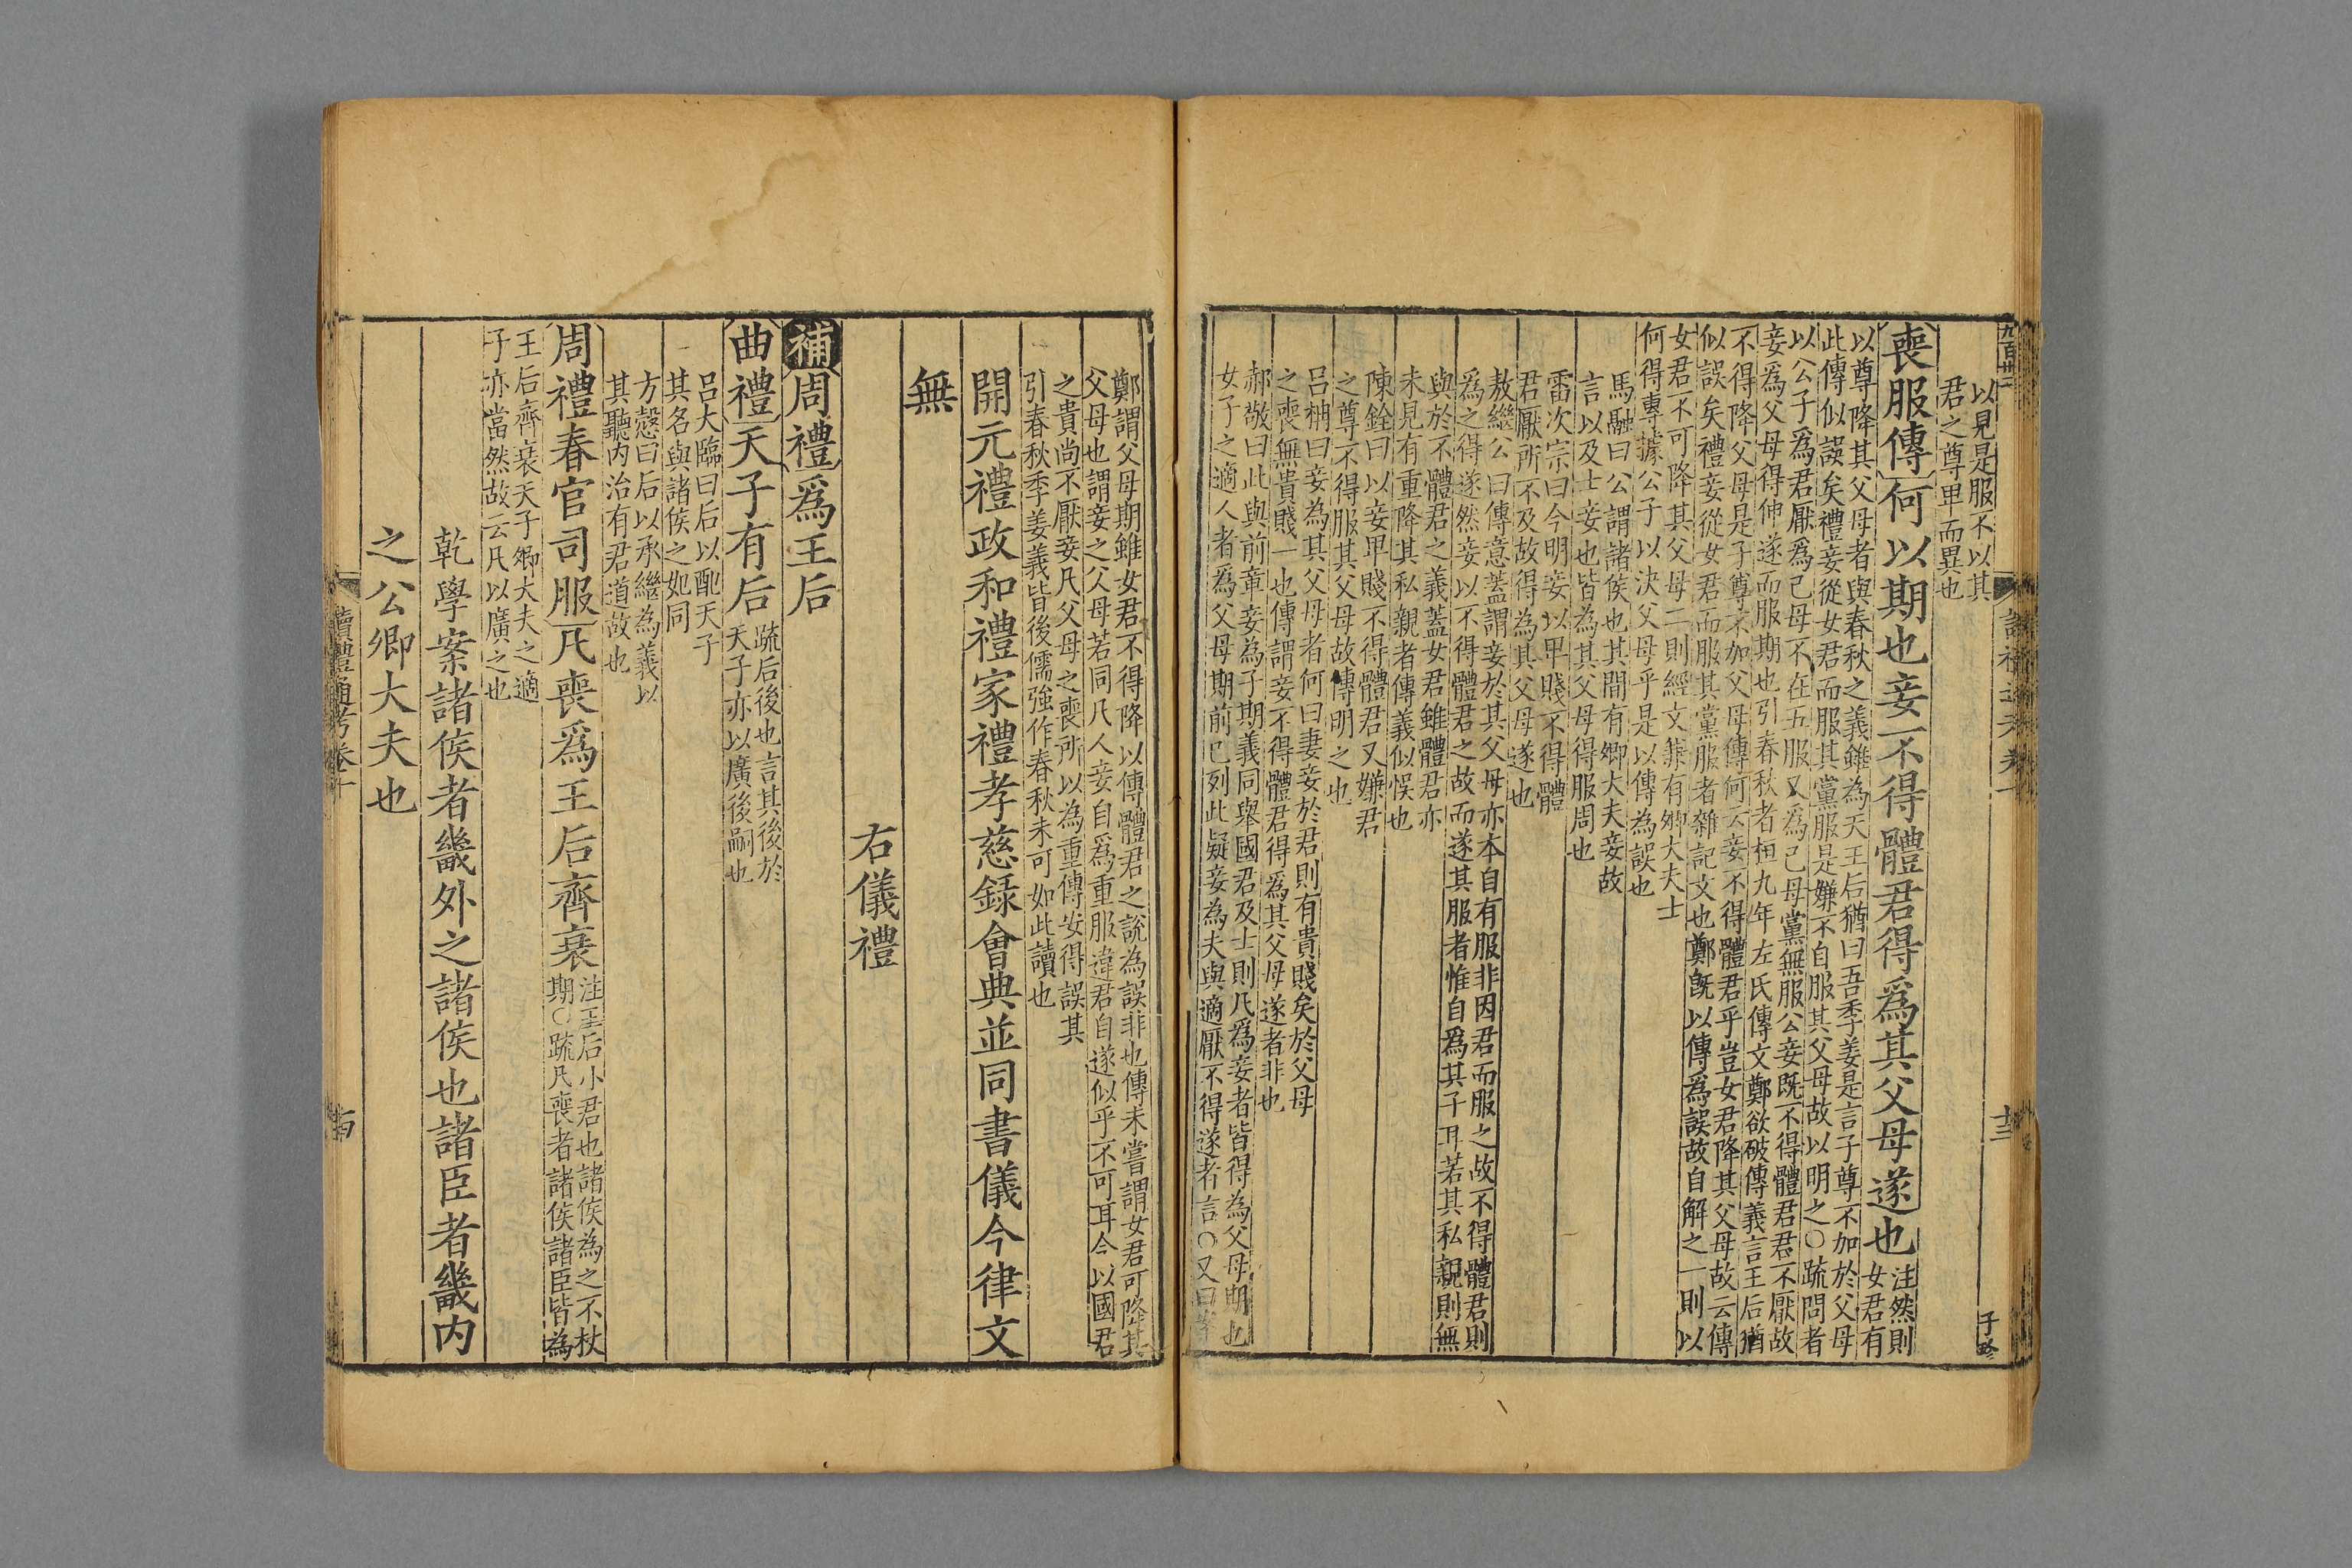 以見是服不以其
君之尊卑而異也
喪服傳何以期也妾不得體君得爲其父母遂也
注然則
女君有
以尊降其父母者與春秋之義雖為天王后猶曰吾季姜是言子尊不加於父母
此傳似誤矣禮妾從女君而服其黨服是嫌不自服其父母故以明之○疏問者
以公子爲君厭爲己母不在五服又爲己母黨無服公妾既不得體君君不厭故
妾爲父母得伸遂而服期也引春秋者桓九年左氏傳文鄭欲破傳義言王后猶
不得降父母是子尊不加父母傳何云妾不得體君乎豈女君降其父母故云傳
似誤矣禮妾從女君而服其黨服者雜記文也鄭旣以傳爲誤故自解之一則以
女君不可降其父母二則經文兼有卿大夫士
何得專據公子以決父母乎是以傳為誤也
馬融曰公謂諸侯也其間有卿大夫妾故
言以及士妾也皆為其父母得服周也
雷次宗曰今明妾以卑賤不得體
君厭所不及故得為其父母遂也
敖繼公曰傳意蓋謂妾於其父母亦本自有服非因君而服之故不得體君則
爲之得遂然妾以不得體君之故而遂其服者惟自爲其子耳若其私親則無
與於不體君之義蓋女君雖體君亦
未見有重降其私親者傳義似悮也
陳銓曰以妾卑賤不得體君又嫌君
之尊不得服其父母故傳明之也
呂柟曰妾為其父母者何曰妻妾於君則有貴賤矣於父母
之喪無貴賤一也傳謂妾不得體君得爲其父母遂者非也
郝敬曰此與前章妾為子期義同舉國君及士則凡爲妾者皆得為父母期也
女子之適人者爲父母期前已列此疑妾為夫與適厭不得遂者言○又曰
鄭謂父母期雖女君不得降以傳體君之說為誤非也傳未嘗謂女君可降其
父母也謂妾之父母若同凡人妾自爲重服違君自遂似乎不可耳今以國君
之貴尚不厭妾凡父母之喪所以為重傳安得誤其
引春秋季姜義皆後儒強作春秋未可如此讀也
開元禮政和禮家禮孝慈錄會典並同書儀今律文
無
右儀禮
補周禮爲王后
曲禮天子有后
疏后後也言其後於
天子亦以廣後嗣也
呂大臨曰后以配天子
其名與諸侯之妃同
方慤曰后以承繼為義以
其聽内治有君道故也
周禮春官司服凡喪爲王后齊衰
注王后小君也諸侯為之不杖
期○疏凡喪者諸侯諸臣皆為
王后齊衰天子卿大夫之適
子亦當然故云凡以廣之也
乾學案諸侯者畿外之諸侯也諸臣者畿内
之公卿大夫也
讀禮通考卷十